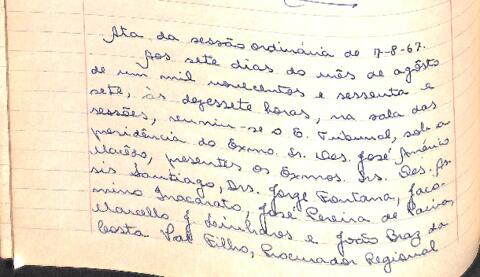 Ata da sessão ordinária de 7-8-67.
Aos sete dias do mês de agôsto
de um mil novecentos e sessenta e
sete, às dezessete horas, na sala das
sessões, reuniu-se o E. Tribunal, sob a
presidência do Exmo. Sr. Des. José Américo
Macêdo, presentes os Exmos. Srs. Des. As-
sis Santiago, Drs. Jorge Fontana, Jaco-
mino Inacarato, José Pereira de Paiva,
Marcello e João Braz da
Costa Val Filho, Procurador Regional